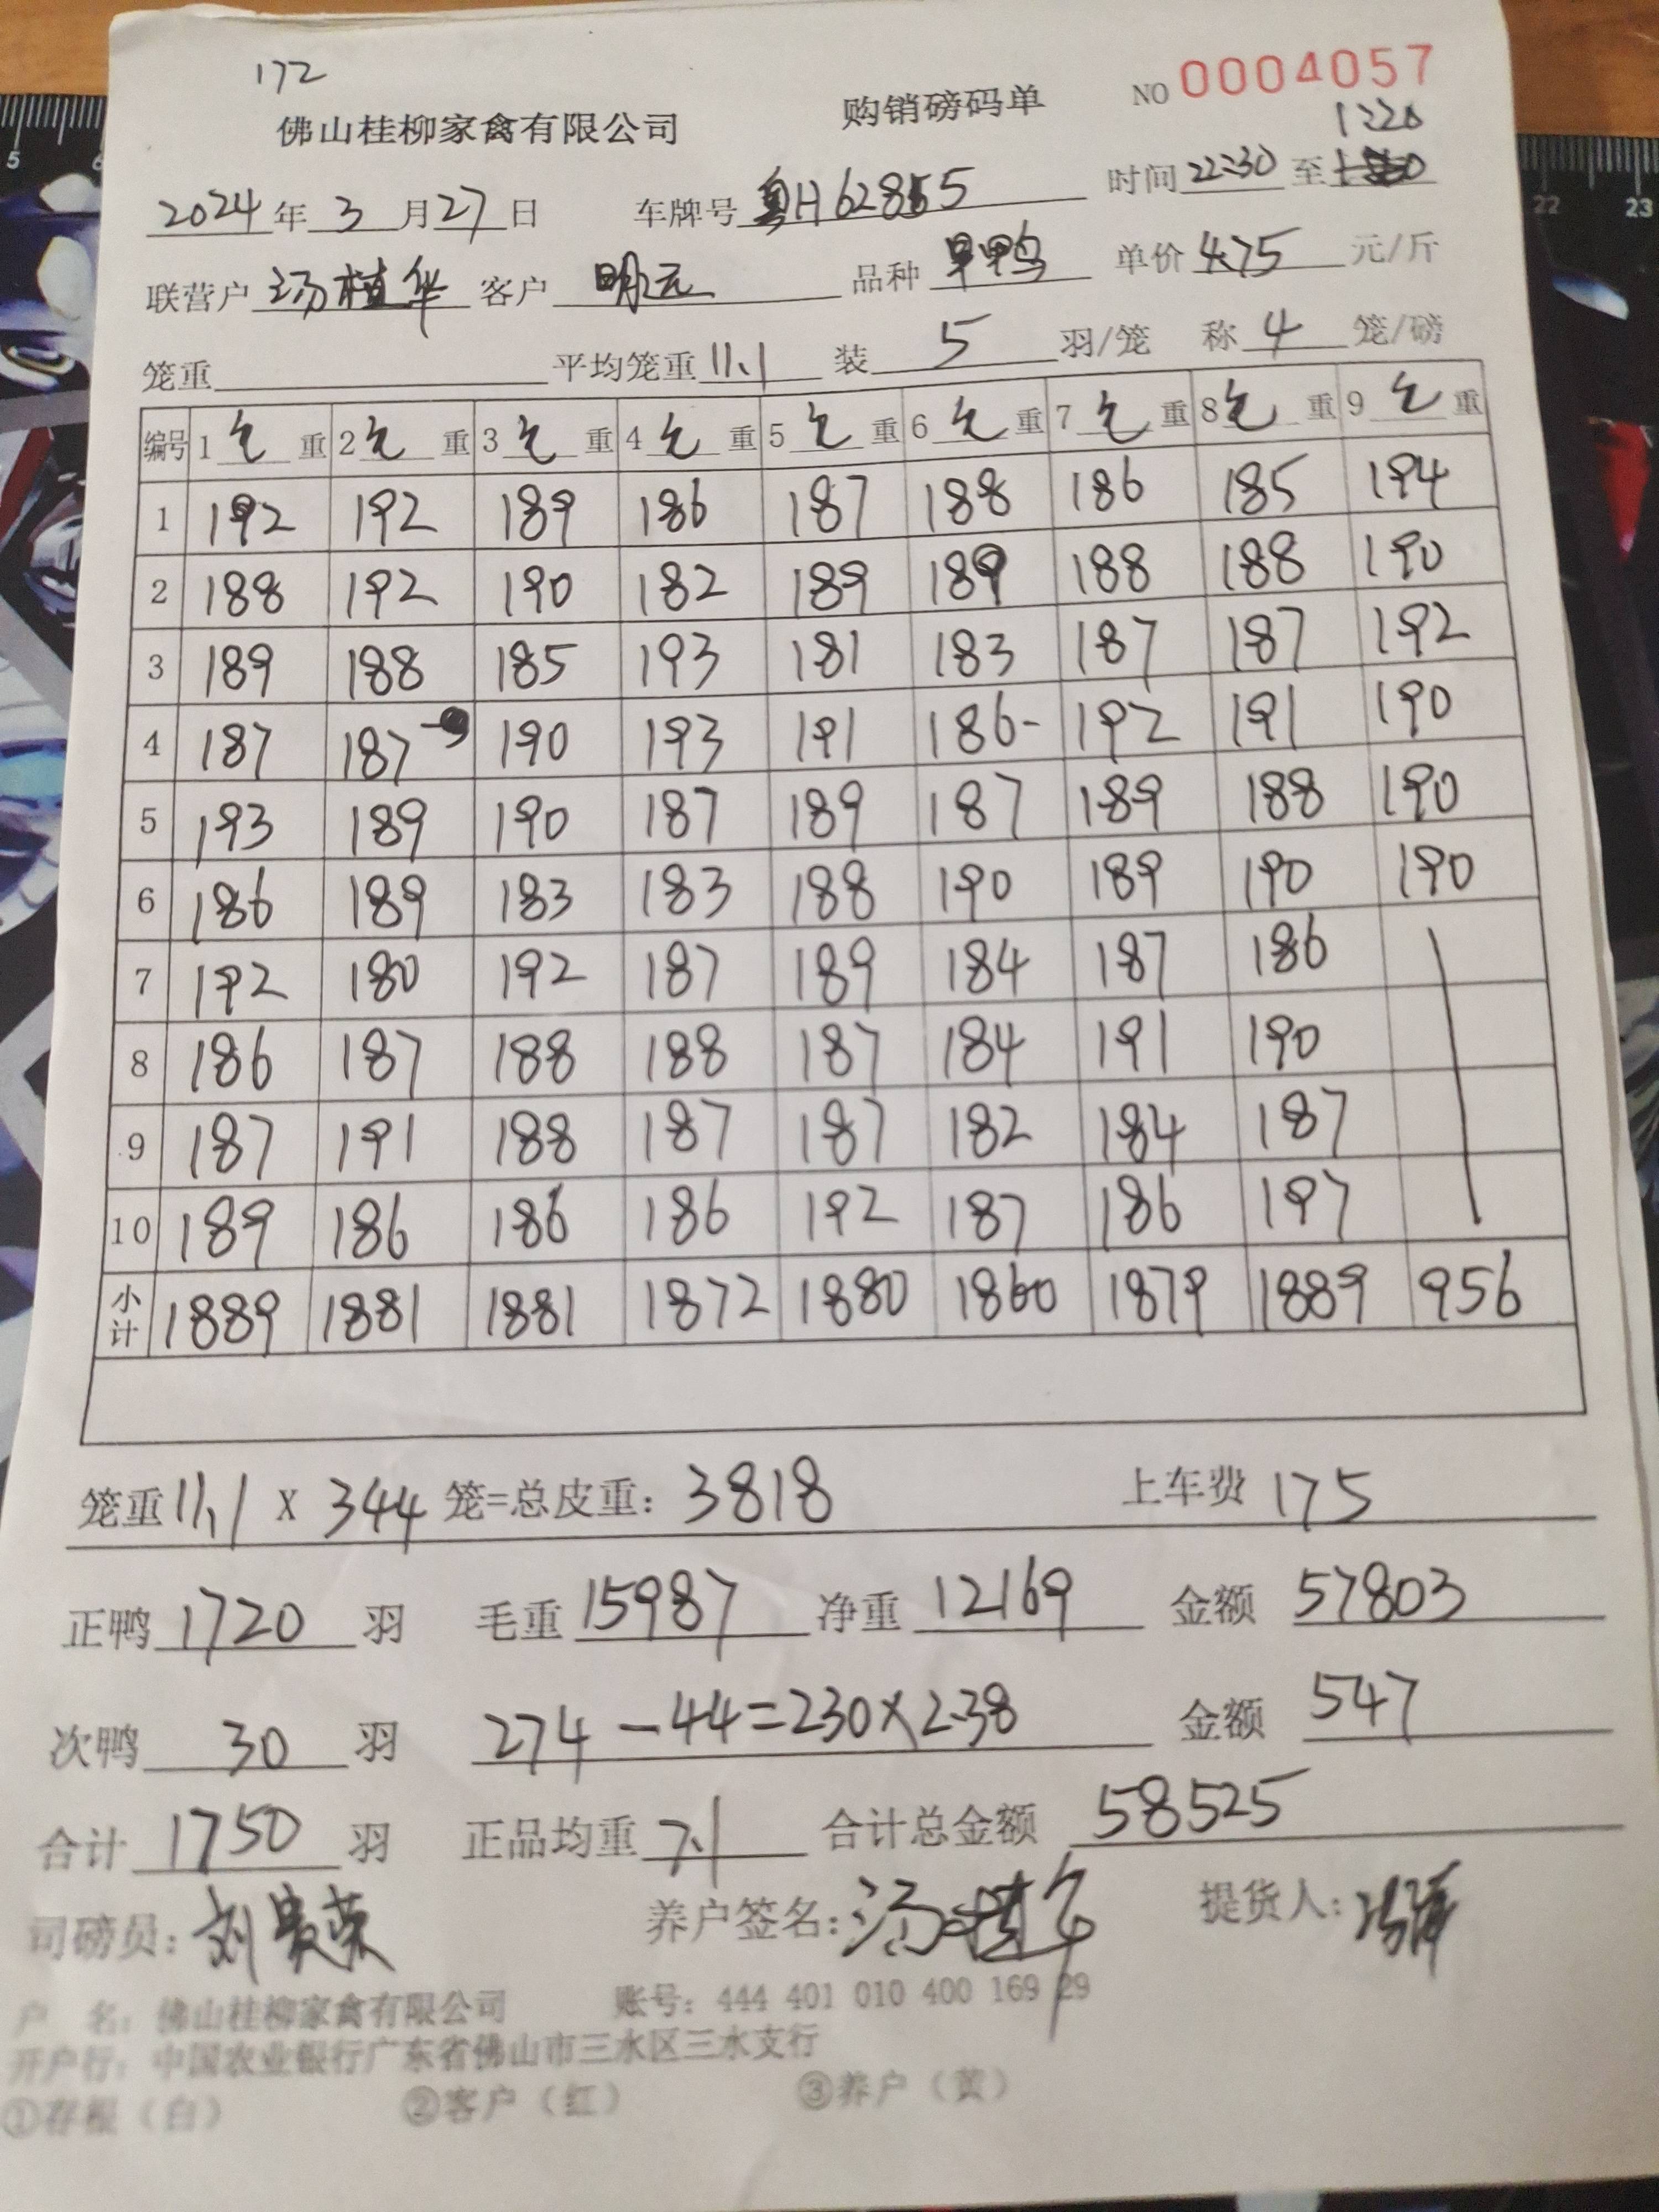 172
NO 0004057
佛山桂柳家禽有限公司 购销磅码单
1:20
2024年3月27日 车牌号粤H62865 时间22:30至
联营户汤植华 客户明元 品种旱鸭 单价4.75元/斤
笼重 平均笼重11.1 装5羽/笼 称4笼/磅
编号 1毛重 2毛重 3毛重 4毛重 5毛重 6毛重 7毛重 8毛重 9毛重
1 192 192 189 186 187 188 186 185 194
2 188 192 190 182 189 189 188 188 190
3 189 188 185 193 181 183 187 187 192
4 187 187 190 193 191 186- 192 191 190
5 193 189 190 187 189 187 189 188 190
6 186 189 183 183 188 190 189 190 190
7 192 180 192 187 189 184 187 186
8 186 187 188 188 187 184 191 190
9 187 191 188 187 187 182 184 187
10 189 186 186 186 192 187 186 197
小计 1889 1881 1881 1872 1880 1860 1879 1889 956
笼重11.1 X 344笼=总皮重：3818 上车费175
正鸭1720羽 毛重15987 净重12169 金额57803
次鸭30羽 274-44=230×2.38 金额547
合计1750羽 正品均重7.1 合计总金额58525
司磅员：刘贵荣 养户签名：汤植华 提货人：
户 名：佛山桂柳家禽有限公司 账号：444 401 010 400 169 29
开户行：中国农业银行广东省佛山市三水区三水支行
①存根（白） ②客户（红） ③养户（黄）